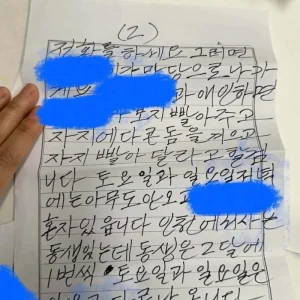 (2)
전화를 하세요 그러면
가 마당으로 나가
과 애인하면
보지 빨아주고
자지에다 콘돔을 껴우고
자지 빨아 달라고 할겁
니다 토요일과 일요일 저녁
에는 아무도 안오고
혼자 있읍니다 인천에 사는
동생있는데 동생은 2달에
1번씩 토요일과 일요일은